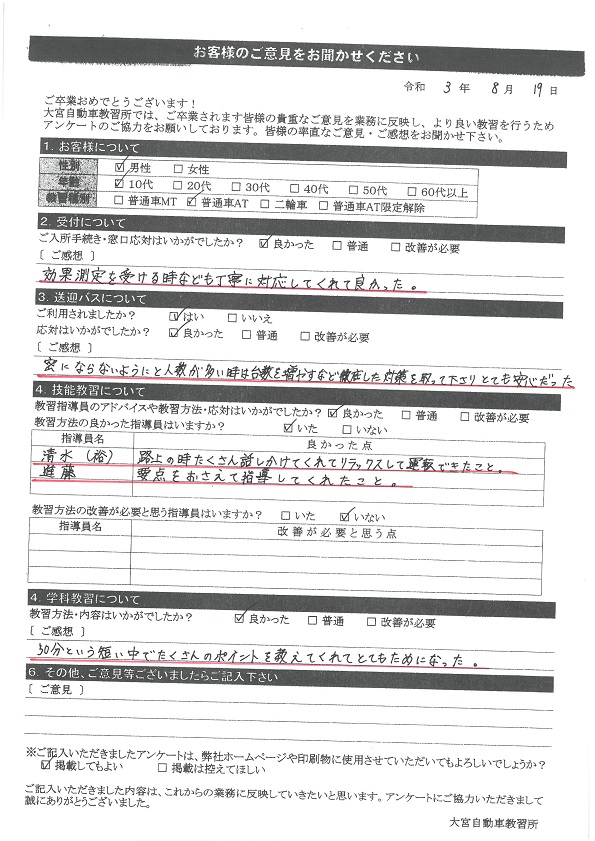 お客様のご意見をお聞かせください
令和 3 年 8 月 19 日
ご卒業おめでとうございます！
大宮自動車教習所では、ご卒業されます皆様の貴重なご意見を業務に反映し、より良い教習を行うため
アンケートのご協力をお願いしております。皆様の率直なご意見・ご感想をお聞かせ下さい。
1. お客様について
性別 ☑男性 □女性
年齢 ☑10代 □20代 □30代 □40代 □50代 □60代以上
教習種別 □普通車MT ☑普通車AT □二輪車 □普通車AT限定解除
2. 受付について
ご入所手続き・窓口応対はいかがでしたか？ ☑良かった □普通 □改善が必要
〔ご感想〕
効果測定を受ける時なども丁寧に対応してくれて良かった。
3. 送迎バスについて
ご利用されましたか？ ☑はい □いいえ
応対はいかがでしたか？ ☑良かった □普通 □改善が必要
〔ご感想〕
密にならないようにと人数が多い時は台数を増やすなど徹底した対策を取って下さりとても安心だった
4. 技能教習について
教習指導員のアドバイスや教習方法・応対はいかがでしたか？ ☑良かった □普通 □改善が必要
教習方法の良かった指導員はいますか？ ☑いた □いない
指導員名 良かった点
清水（裕） 路上の時たくさん話しかけてくれてリラックスして運転できたこと。
進藤 要点をおさえて指導してくれたこと。
教習方法の改善が必要と思う指導員はいますか？ □いた ☑いない
指導員名 改善が必要と思う点
4. 学科教習について
教習方法・内容はいかがでしたか？ ☑良かった □普通 □改善が必要
〔ご感想〕
50分という短い中でたくさんのポイントを教えてくれてとてもためになった。
6. その他、ご意見等ございましたらご記入下さい
〔ご意見〕
※ご記入いただきましたアンケートは、弊社ホームページや印刷物に使用させていただいてもよろしいでしょうか？
☑掲載してもよい □掲載は控えてほしい
ご記入いただきました内容は、これからの業務に反映していきたいと思います。アンケートにご協力いただきまして
誠にありがとうございました。
大宮自動車教習所